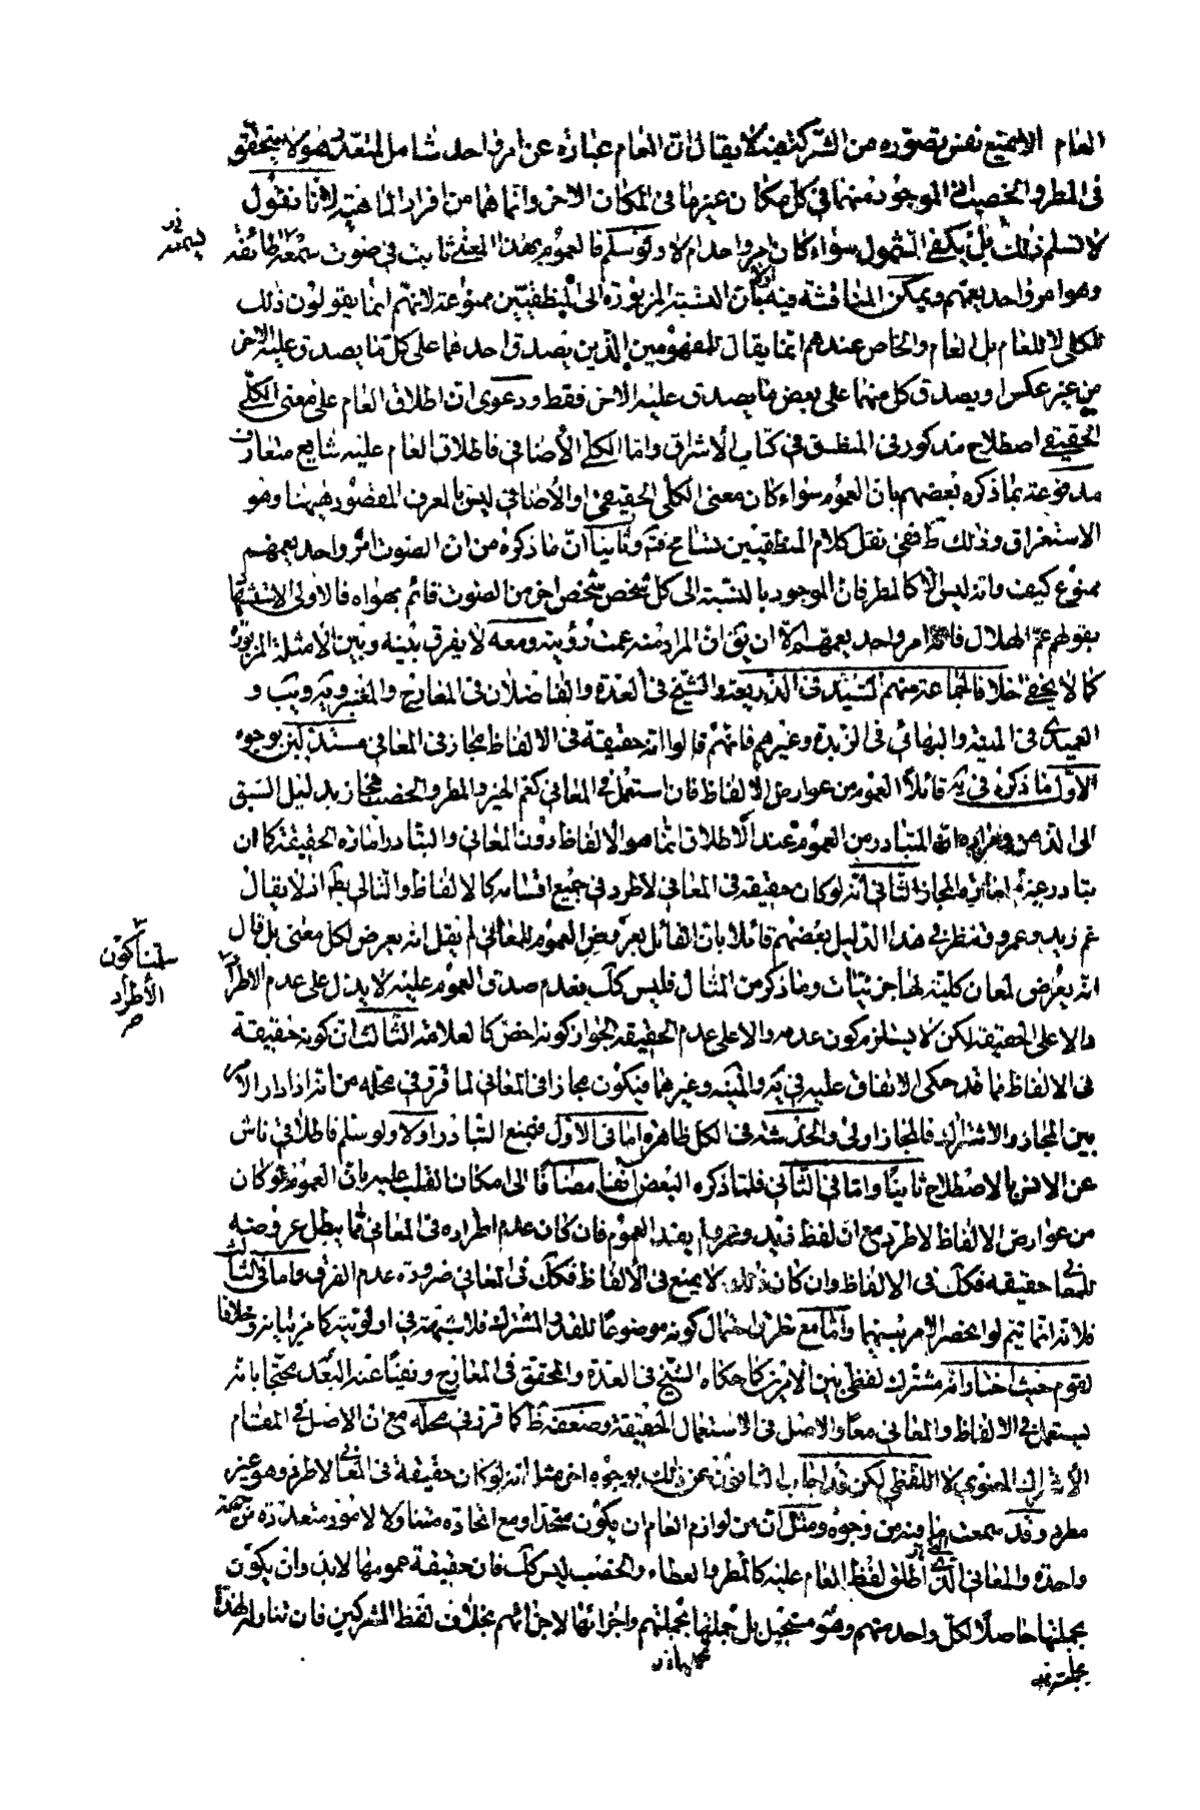 العام الا يمتنع نفس تصوره من الشركة فيه لا يقال ان العام عبارة عن امر واحد شامل لمتعدد وهو لا يتحقق
فى المطر والخصب اذ الموجود منهما فى كل مكان غير ما فى المكان الاخر وانما هما من افراد الماهية لانا نقول
لا نسلم ذلك بل يكفى الشمول سواء كان امر واحد ام لا ولو سلم فالعموم بهذا المعنى ثابت فى صوت يسمعه طائفة
وهو امر واحد يعمهم ويمكن المناقشة فيه اولا بان النسبة المزبورة الى المنطقيين ممنوعة لانهم انما يقولون ذلك
للكلى لا للعام بل العام والخاص عندهم انما يقال للمفهومين الذين يصدق احدهما على كل ما يصدق عليه الاخر
من غير عكس او يصدق كل منهما على بعض ما يصدق عليه الاخر فقط ودعوى ان اطلاق العام على معنى الكلى
الحقيقى اصطلاح مذكور فى المنطق فى كتاب الاشراق واما الكلى الأضافى فاطلاق العام عليه شايع متعارف
مدفوعة بما ذكره بعضهم بان العموم سواء كان معنى الكلى الحقيقى او الأضافى ليس بالمعرف المقصود ههنا وهو
الاستغراق وذلك ظ ففى نقل كلام المنطقيين تسامح منه وثانيا ان ما ذكره من ان الصوت امر واحد يعمهم
ممنوع كيف وانه ليس الا كالمطر فان الموجود بالنسبة الى كل شخص شخص اخر من الصوت قائم بهواه فالاولى الاستشهاد
بقولهم عم الهلال فانه امر واحد يعمهم الا ان يق ان المراد منه عمت رؤيته ومعه لا يفرق بينه وبين الامثلة المزبورة
كما لا يخفى خلافا لجماعة منهم السيد فى الذريعة والشيخ فى العدة والفاضلان فى المعارج والمنية ويه ويب و
العميدى فى المنية والبهائى فى الزبدة وغيرهم فانهم قالوا انه حقيقة فى الالفاظ مجاز فى المعانى مستندين بوجوه
الأول ما ذكره فى يه قائلا العموم من عوارض الالفاظ فان استعمل فى المعانى كعم الخير والمطر والخصب فمجاز بدليل السبق
الى الذهن ومراده ان المتبادر من العموم عند الاطلاق انما هو الالفاظ دون المعانى والتبادر امارة الحقيقة كما ان
تبادر غيره امارة المجاز الثانى انه لو كان حقيقة فى المعانى لاطرد فى جميع اقسامه كالالفاظ والتالى بط اذ لا يقال
عم زيد وعمرو ونظر فى هذا الدليل بعضهم قائلا بان القائل بعروض العموم للمعانى لم يقل انه يعرض لكل معنى بل قال
انه يعرض لمعان كلية لها جزئيات وما ذكر من المثال فليس كك بعدم صدق العموم عليه لا يدل على عدم الاطراد
دالا على الحقيقة لكن لا يستلزم كون عدمه دالا على عدم الحقيقة لجواز كونه اخص كالعلامة الثالث ان كونه حقيقة
فى الالفاظ مما قد حكى الاتفاق عليه فى يه والمنية وغيرهما فيكون مجازا فى المعانى لما قرر فى محله من انه اذا دار الامر
بين المجاز والاشتراك فالمجاز اولى والخدشة فى الكل ظاهرة اما فى الاول فلمنع التبادر اولا ولو سلم فاطلاقى ناش
عن الانس بالاصطلاح ثانيا واما فى الثانى فلما ذكره البعض انفا مضافا الى مكان القلب عليه بان العموم لو كان
من عوارض الالفاظ لاطرد مع ان لفظ زيد وعمرو لم يفد العموم فان كان عدم اطراده فى المعانى مما يبطل عروضه
للمعانى حقيقة فكك فى الالفاظ وان كان ذلك لا يمنع فى الألفاظ فكك فى المعانى ضرورة عدم الفرق واما فى الثالث
فلانه انما يتم لو انحصر الامر بينهما واما مع تطرق احتمال كونه موضوعا للقدر المشترك فلا شبهة فى اولويته كما مر بيانه وخلافا
لقوم حيث اختاروا انه مشترك لفظى بين الامرين كما حكاه الشيخ فى العدة والمحقق فى المعارج ونفينا عنه البعد محتجا بانه
يستعمل فى الالفاظ والمعانى معا والاصل فى الاستعمال الحقيقة وضعفه ظ كما قرر فى محله مع ان الاصل فى المقام
الأشتراك المعنوى لا اللفظى لكن قد اجاب المانعون عن ذلك بوجوه اخر مثل انه لو كان حقيقة فى المعانى لاطرد وهو غير
مطرد وقد سمعت ما فيه من وجوه ومثل ان من لوازم العام ان يكون متحدا ومع اتحاده متناولا لامور متعددة من جهة
واحدة والمعانى التى اطلق لفظ العام عليه كالمطر والعطاء والخصب ليس كك فان حقيقة عمومها لابد وان يكون
بجملتها حاصلا لكل واحد منهم وهو مستحيل بل جملتها لجملتهم واجزائها لاجزائهم بخلاف لفظ المشركين فان تناوله لهذا
سلمنا كون
الأطراد
صح